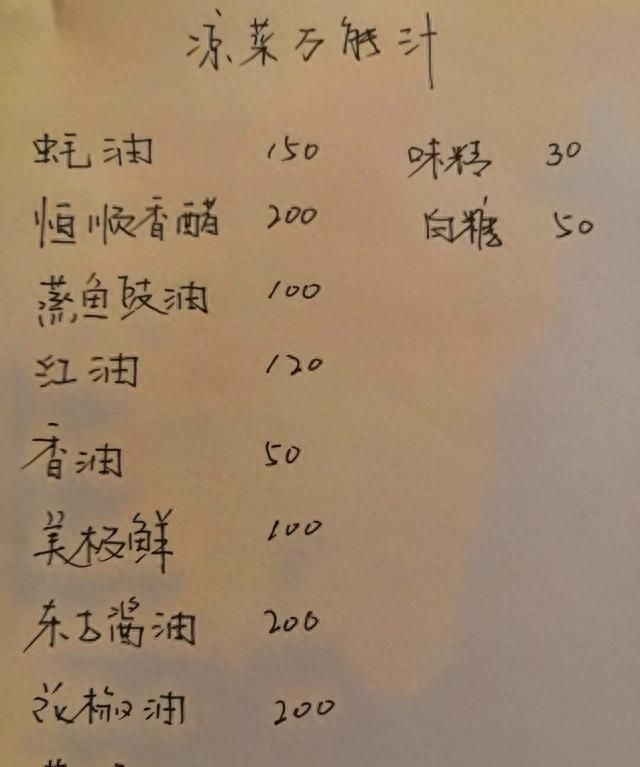 凉菜万能汁
蚝油 150 味精 30
恒顺香醋 200 白糖 50
蒸鱼豉油 100
红油 120
香油 50
美极鲜 100
东古酱油 200
花椒油 200